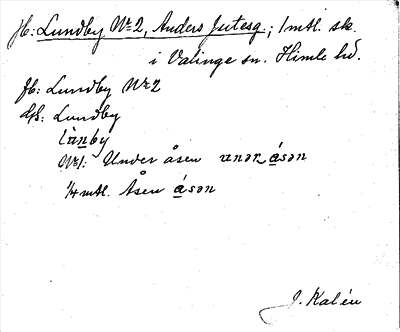 Jb: Lundby Nr 2, Anders Jutesg.; 1 mtl. sk.
i Valinge sn. Himle hd.
Jb: Lundby Nr 2
dſs: Lundby
lànby
Nr 1: Under åsen unər ásən
¼ mtl. Åsen ásən
J. Kalén